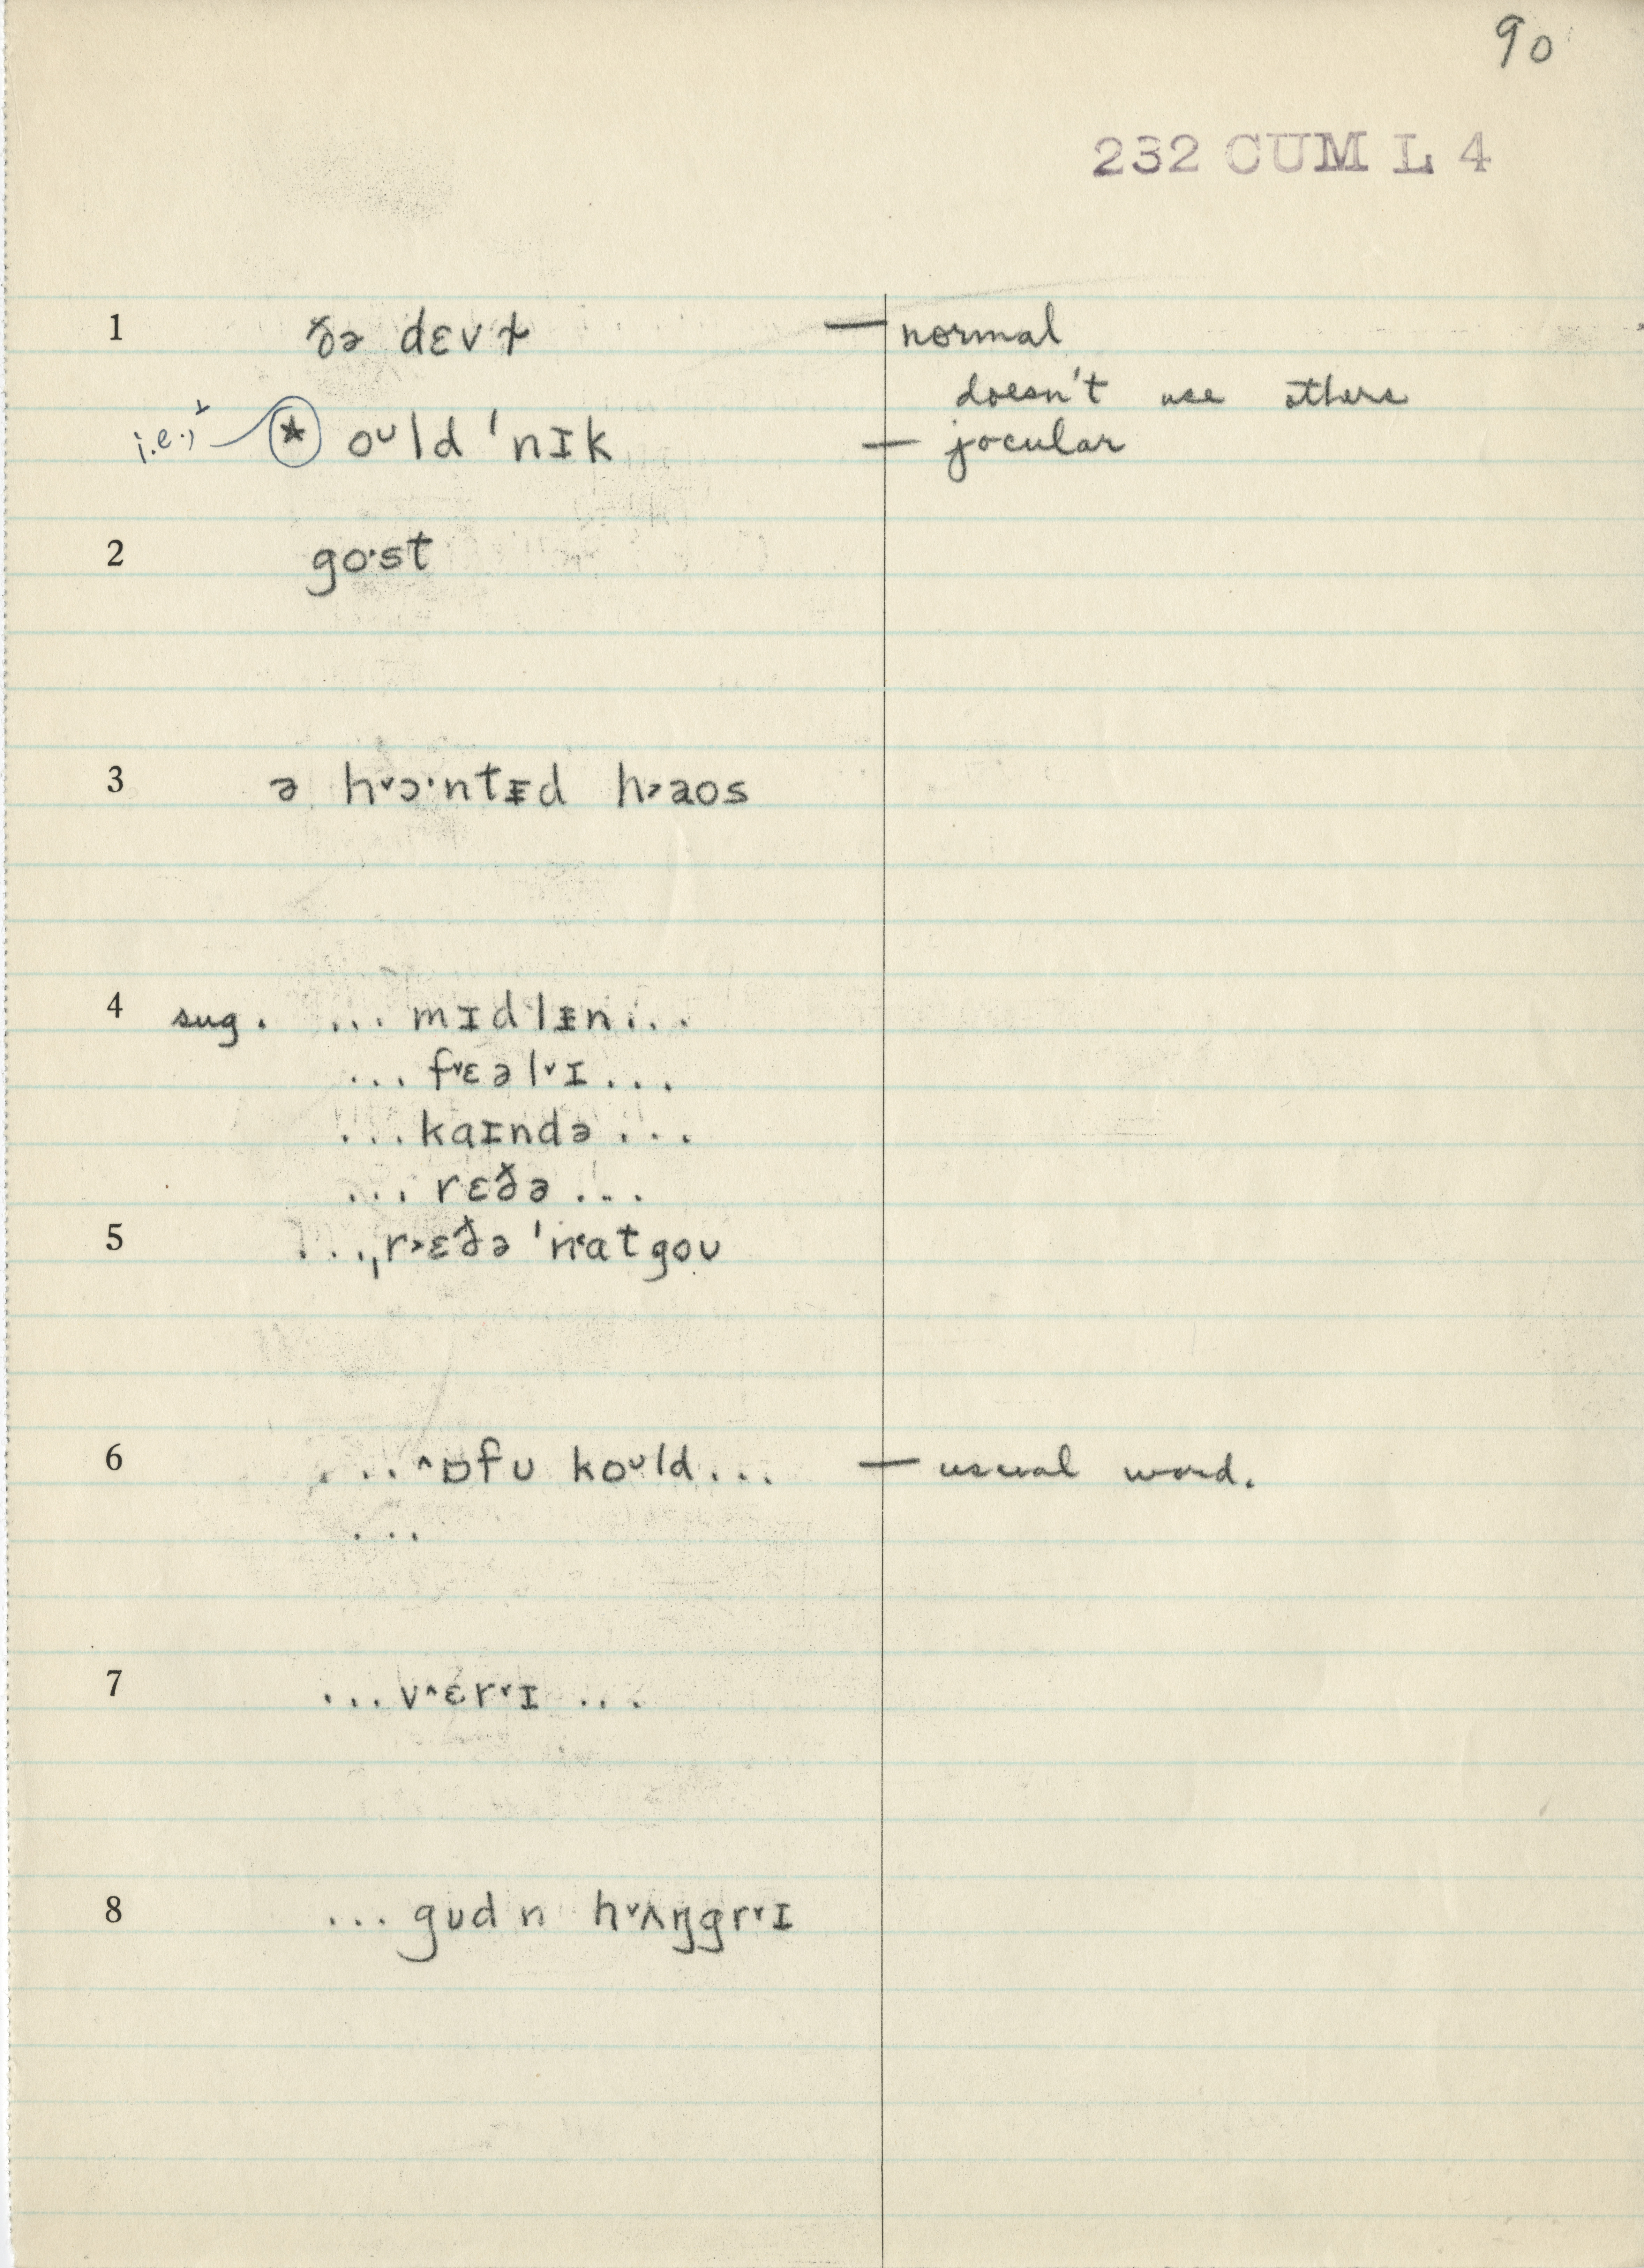 90
232 CUM L 4
1 ðə dɛvɫ — normal
doesn't use others
i.e., ★ oᴜld 'nɪk — jocular
2 go·st
3 ə h˅ɔ·ntᵻd h˃aos
4 sug. ... mɪdlᵻn ...
... f˅ɛəl˅ɪ ...
... kaɪndə ...
... rɛðə ...
5 ...ˌr˃ɛðə 'n˂atgoᴜ
6 ... ˄ɒfᴜ koᴜld ... — usual word.
...
7 ... v˄ɛr˅ɪ ...
8 ... gᴜd n h˅ʌŋgr˅ɪ